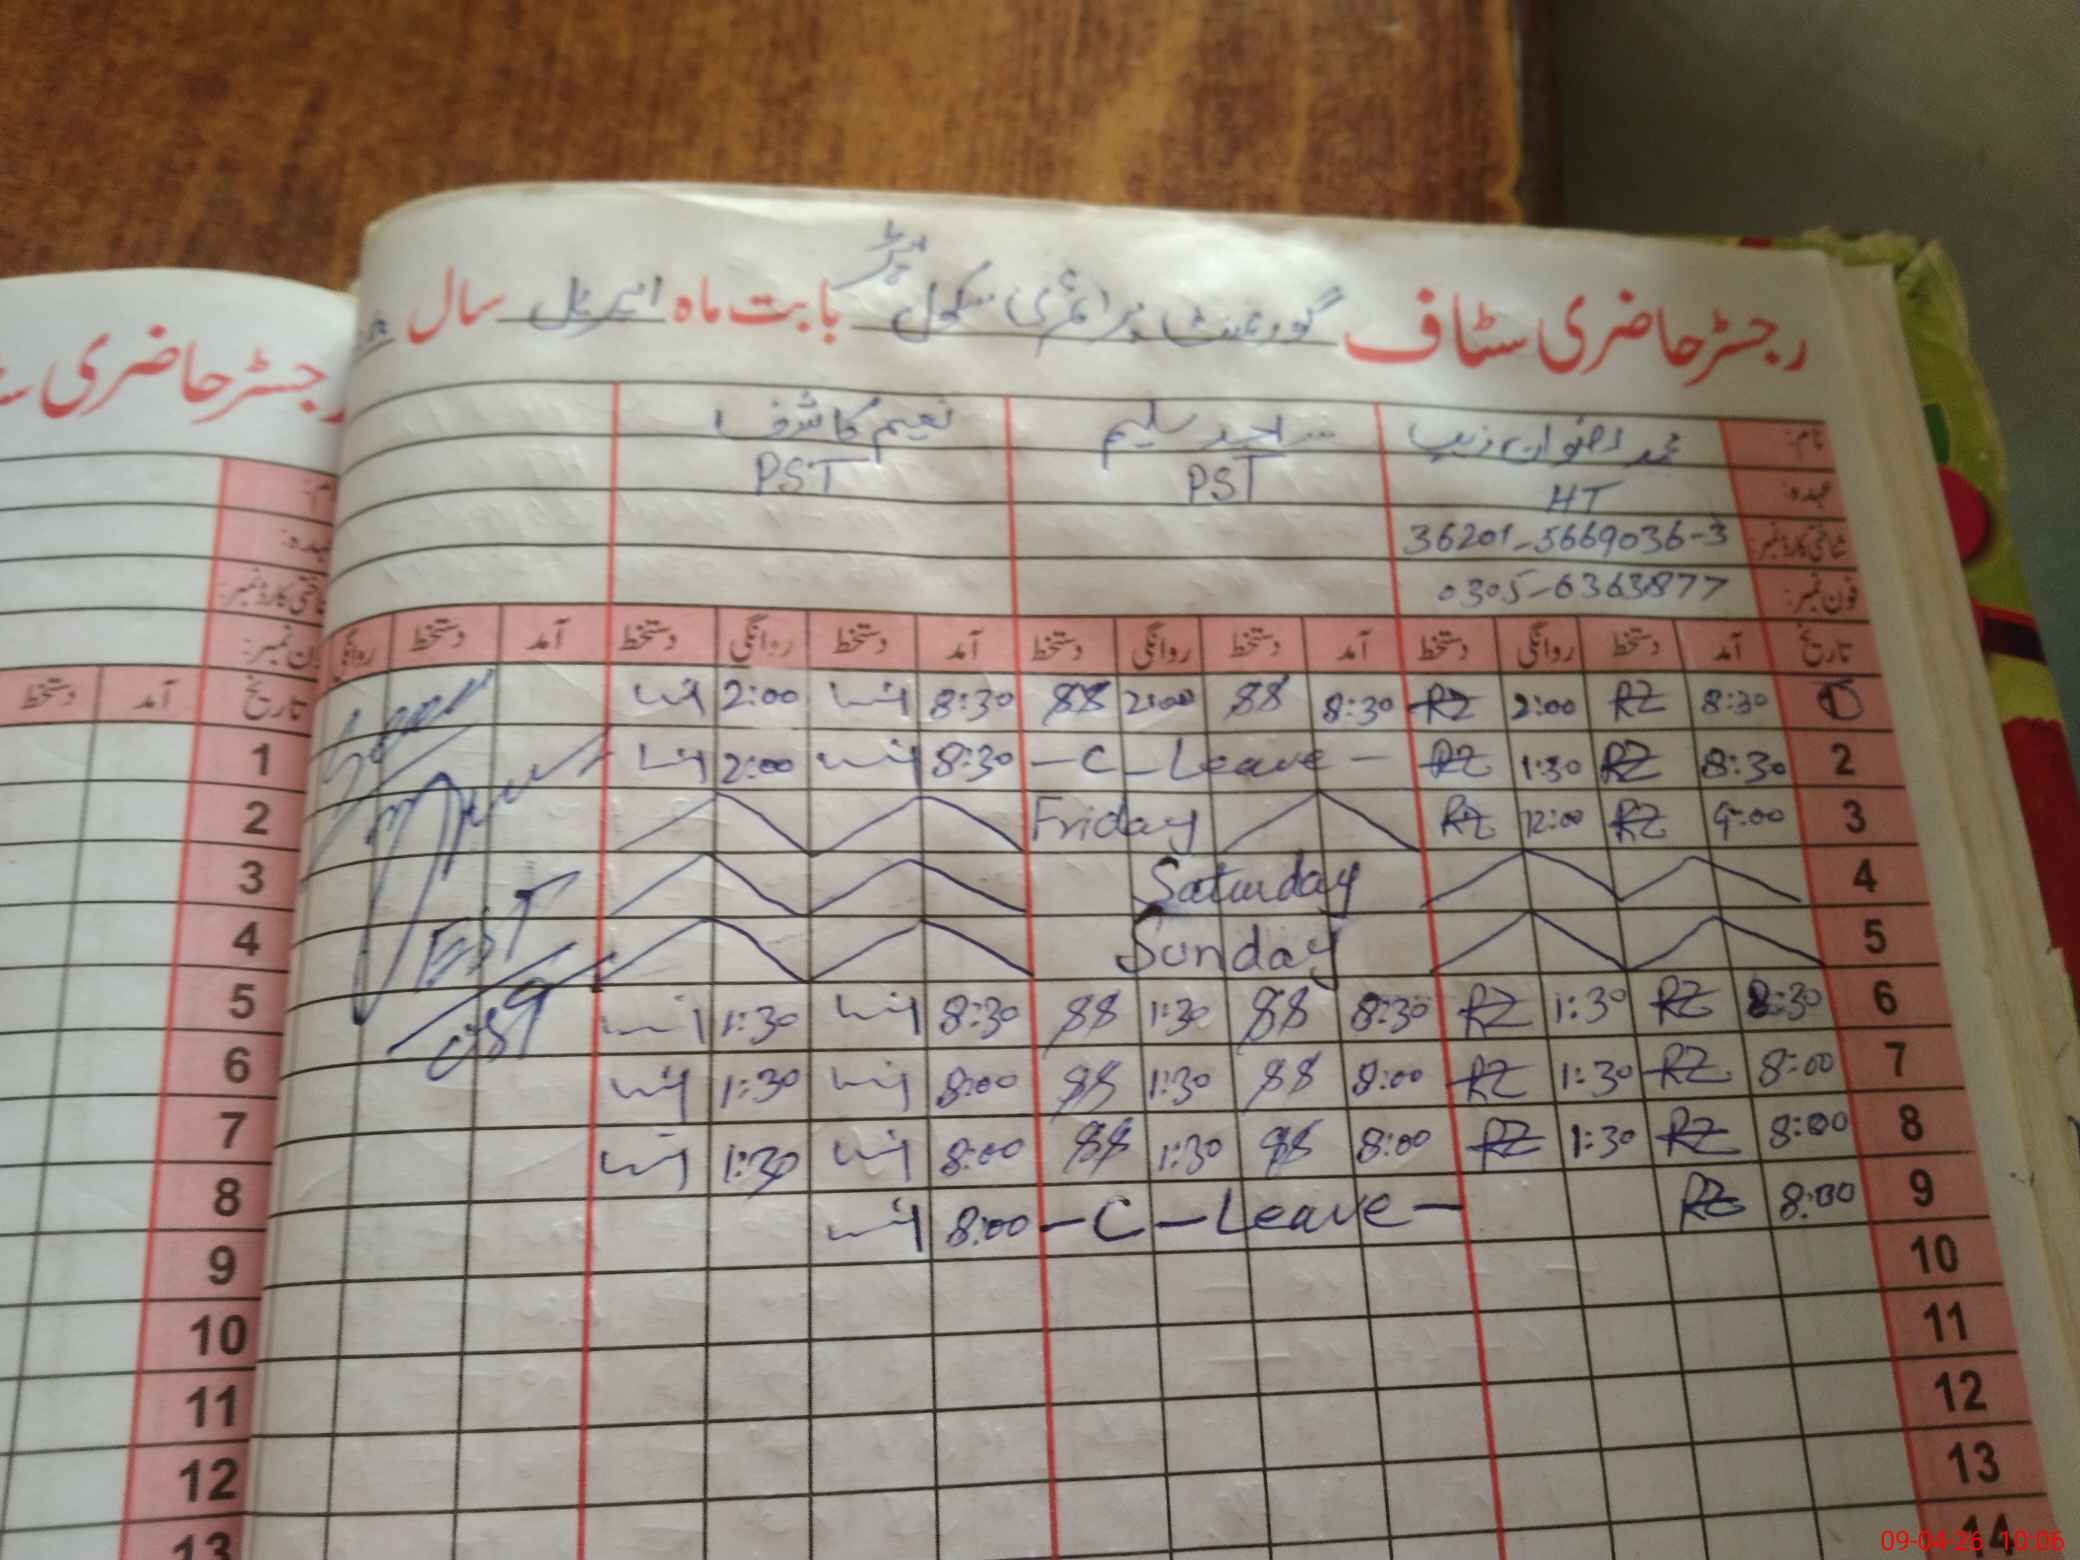 رجسٹر حاضری سٹاف گورنمنٹ پرائمری سکول بابت ماہ اپریل سال
نام: محمد رضوان زیب ساجد سلیم نعیم کاشف
عہدہ: HT PST PST
شناختی کارڈ نمبر: 36201-5669036-3
فون نمبر: 0305-6363877
تاریخ آمد دستخط روانگی دستخط آمد دستخط روانگی دستخط آمد دستخط روانگی دستخط آمد دستخط روانگی
1 8:30 RZ 2:00 RZ 8:30 SS 2:00 SS 8:30 2:00
2 8:30 RZ 1:30 RZ - C - Leave - 8:30 2:00
3 9:00 RZ 12:00 RZ Friday
4 Saturday
5 Sunday
6 8:30 RZ 1:30 RZ 8:30 SS 1:30 SS 8:30 1:30
7 8:00 RZ 1:30 RZ 8:00 SS 1:30 SS 8:00 1:30
8 8:00 RZ 1:30 RZ 8:00 SS 1:30 SS 8:00 1:30
9 8:00 RZ - C - Leave - 8:00
10
11
12
13
14
رجسٹر حاضری
تاریخ آمد دستخط
1
2
3
4
5
6
7
8
9
10
11
12
13
09-04-26 10:06